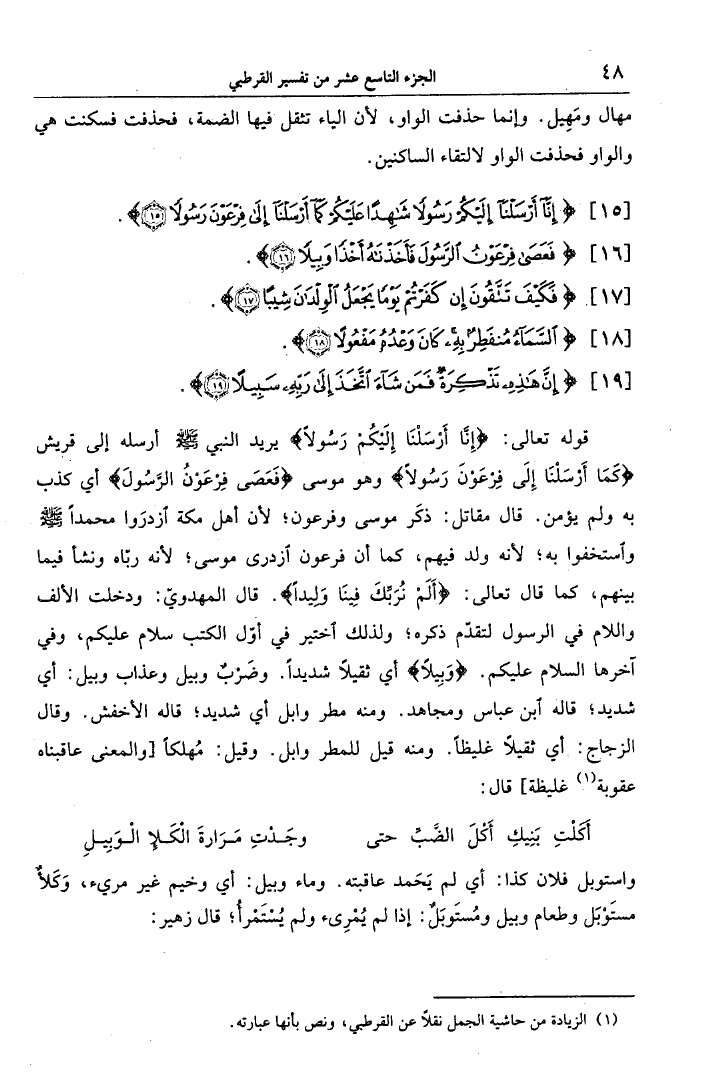 ٤٨
الجزء التاسع عشر من تفسير القرطبي
مهال ومَهِيل. وإنما حذفت الواو، لأن الياء تثقل فيها الضمة، فحذفت فسكنت هي
والواو فحذفت الواو لالتقاء الساكنين.
[١٥] ﴿ إِنَّآ أَرْسَلْنَآ إِلَيْكُمْ رَسُولًا شَٰهِدًا عَلَيْكُمْ كَمَآ أَرْسَلْنَآ إِلَىٰ فِرْعَوْنَ رَسُولًا ١٥﴾.
[١٦] ﴿ فَعَصَىٰ فِرْعَوْنُ ٱلرَّسُولَ فَأَخَذْنَٰهُ أَخْذًا وَبِيلًا ١٦﴾.
[١٧] ﴿ فَكَيْفَ تَتَّقُونَ إِن كَفَرْتُمْ يَوْمًا يَجْعَلُ ٱلْوِلْدَٰنَ شِيبًا ١٧﴾.
[١٨] ﴿ ٱلسَّمَآءُ مُنفَطِرٌۢ بِهِۦ كَانَ وَعْدُهُۥ مَفْعُولًا ١٨﴾.
[١٩] ﴿ إِنَّ هَٰذِهِۦ تَذْكِرَةٌ فَمَن شَآءَ ٱتَّخَذَ إِلَىٰ رَبِّهِۦ سَبِيلًا ١٩﴾.
قوله تعالى: ﴿إِنَّا أَرْسَلْنَا إِلَيْكُمْ رَسُولاً﴾ يريد النبي ﷺ أرسله إلى قريش
﴿كَمَا أَرْسَلْنَا إِلَى فِرْعَوْنَ رَسُولاً﴾ وهو موسى ﴿فَعَصَى فِرْعَوْنُ الرَّسُولَ﴾ أي كذب
به ولم يؤمن. قال مقاتل: ذكَر موسى وفرعون؛ لأن أهل مكة ٱزدرَوا محمداً ﷺ
وٱستخفوا به؛ لأنه ولد فيهم، كما أن فرعون ٱزدرى موسى؛ لأنه ربّاه ونشأ فيما
بينهم، كما قال تعالى: ﴿أَلَمْ نُرَبِّكَ فِينَا وَلِيداً﴾. قال المهدويّ: ودخلت الألف
واللام في الرسول لتقدّم ذكره؛ ولذلك ٱختير في أوّل الكتب سلام عليكم، وفي
آخرها السلام عليكم. ﴿وَبِيلاً﴾ أي ثقيلاً شديداً. وضَرْبٌ وبيل وعذاب وبيل: أي
شديد؛ قاله ٱبن عباس ومجاهد. ومنه مطر وابل أي شديد؛ قاله الأخفش. وقال
الزجاج: أي ثقيلاً غليظاً. ومنه قيل للمطر وابل. وقيل: مُهلكاً [والمعنى عاقبناه
عقوبة(١) غليظة] قال:
أَكَلْتِ بَنِيكِ أَكْلَ الضَّبِّ حتى وجَدْتِ مَرَارةَ الْكَلإِ الْوَبِيلِ
واستوبل فلان كذا: أي لم يَحْمد عاقبته. وماء وبيل: أي وخيم غير مريء، وَكَلأٌ
مستَوْبَل وطعام وبيل ومُستَوبَلٌ: إذا لم يُمْرِىء ولم يُسْتَمْرأْ؛ قال زهير:
(١) الزيادة من حاشية الجمل نقلاً عن القرطبي، ونص بأنها عبارته.